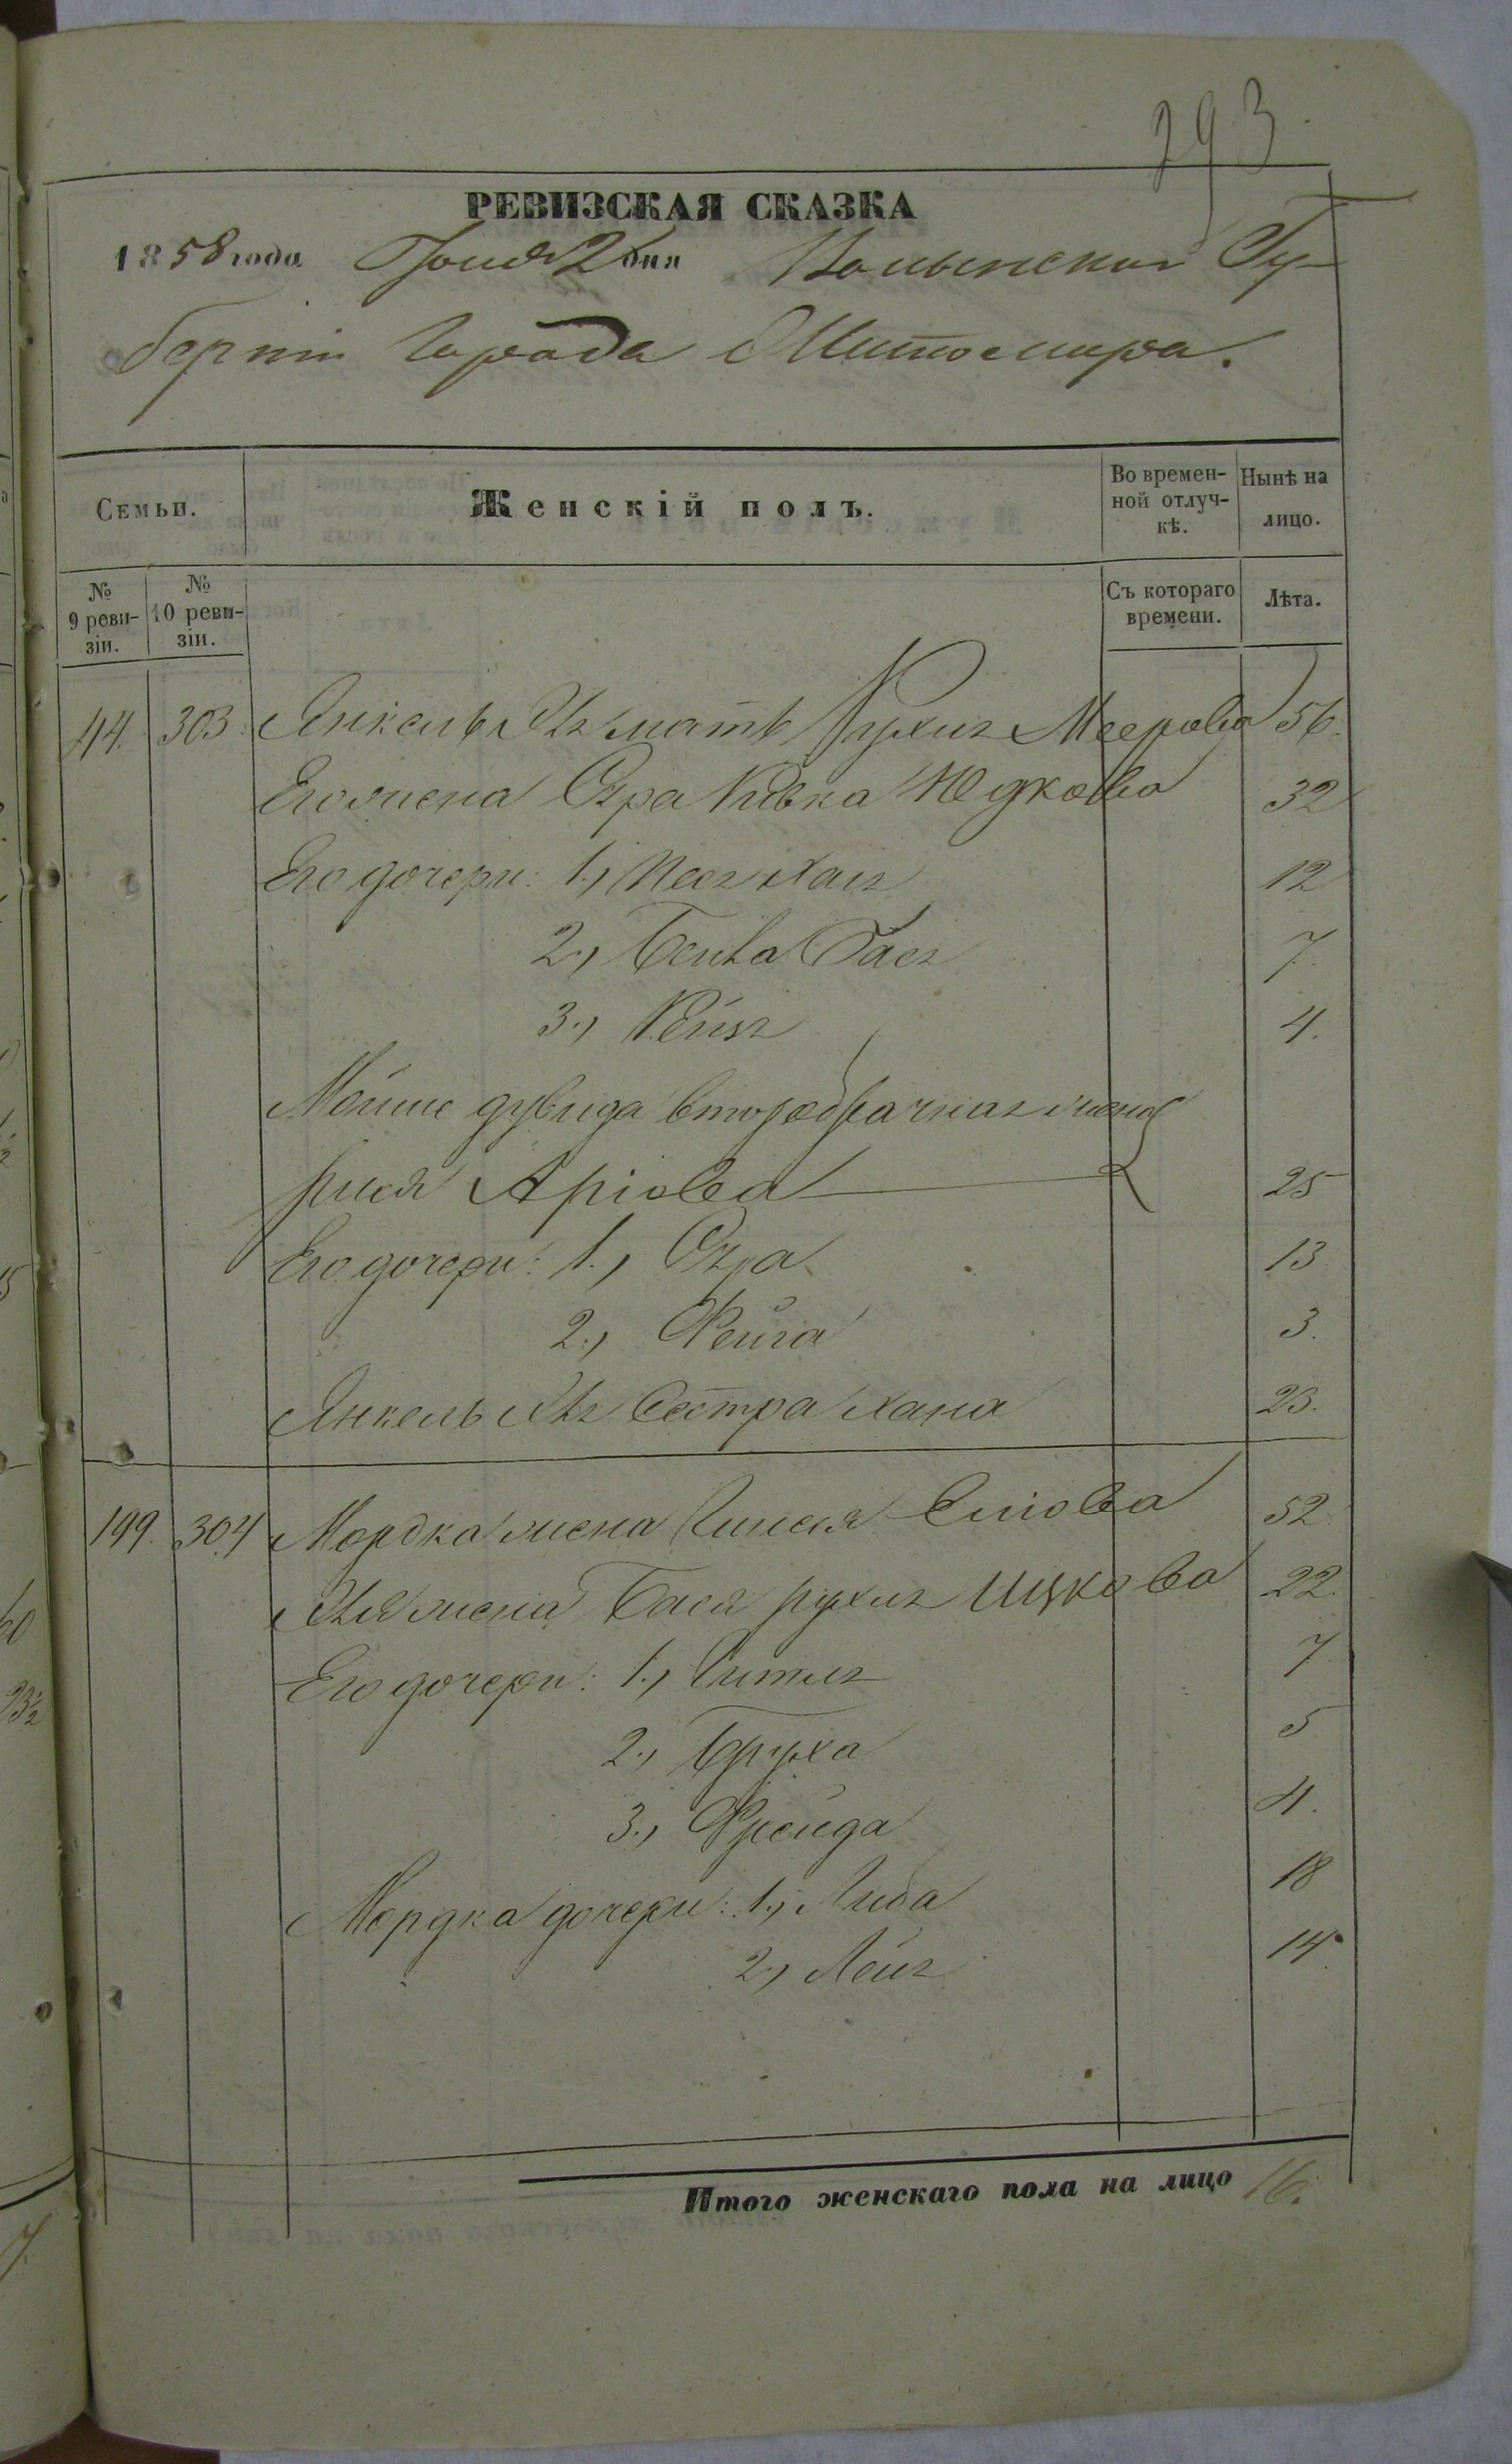 293.
РЕВИЗСКАЯ СКАЗКА
1858 года Іюня 2 дня Волынской Гу-
берніи Города Житомира.
Семьи.
Женскій полъ.
Во времен-
ной отлуч-
кѣ.
Нынѣ на
лицо.
№
9 реви-
зіи.
№
10 реви-
зіи.
Съ котораго
времени.
Лѣта.
44. 303 Янкель мать Рухля Меерова 56.
Его жена Сура Ривка Юдкова 32
Его дочери: 1., Хая 12
2., Бейла 7.
3., Рейзя 4.
Мойше Дувида второбрачная жена
Рися Аріова 25
Его дочери: 1., Сура 13
2., Фейга 3.
Янкель сестра Хана 23.
199. 304 Мордка жена Еліова 52
жена Бася Рухля Ицкова 22.
Его дочери: 1., Гитля 7
2., Бруха 5
3., Фрейда 4.
Мордка дочери: 1., Либа 18
2., Лея 14.
Итого женскаго пола на лицо 16.